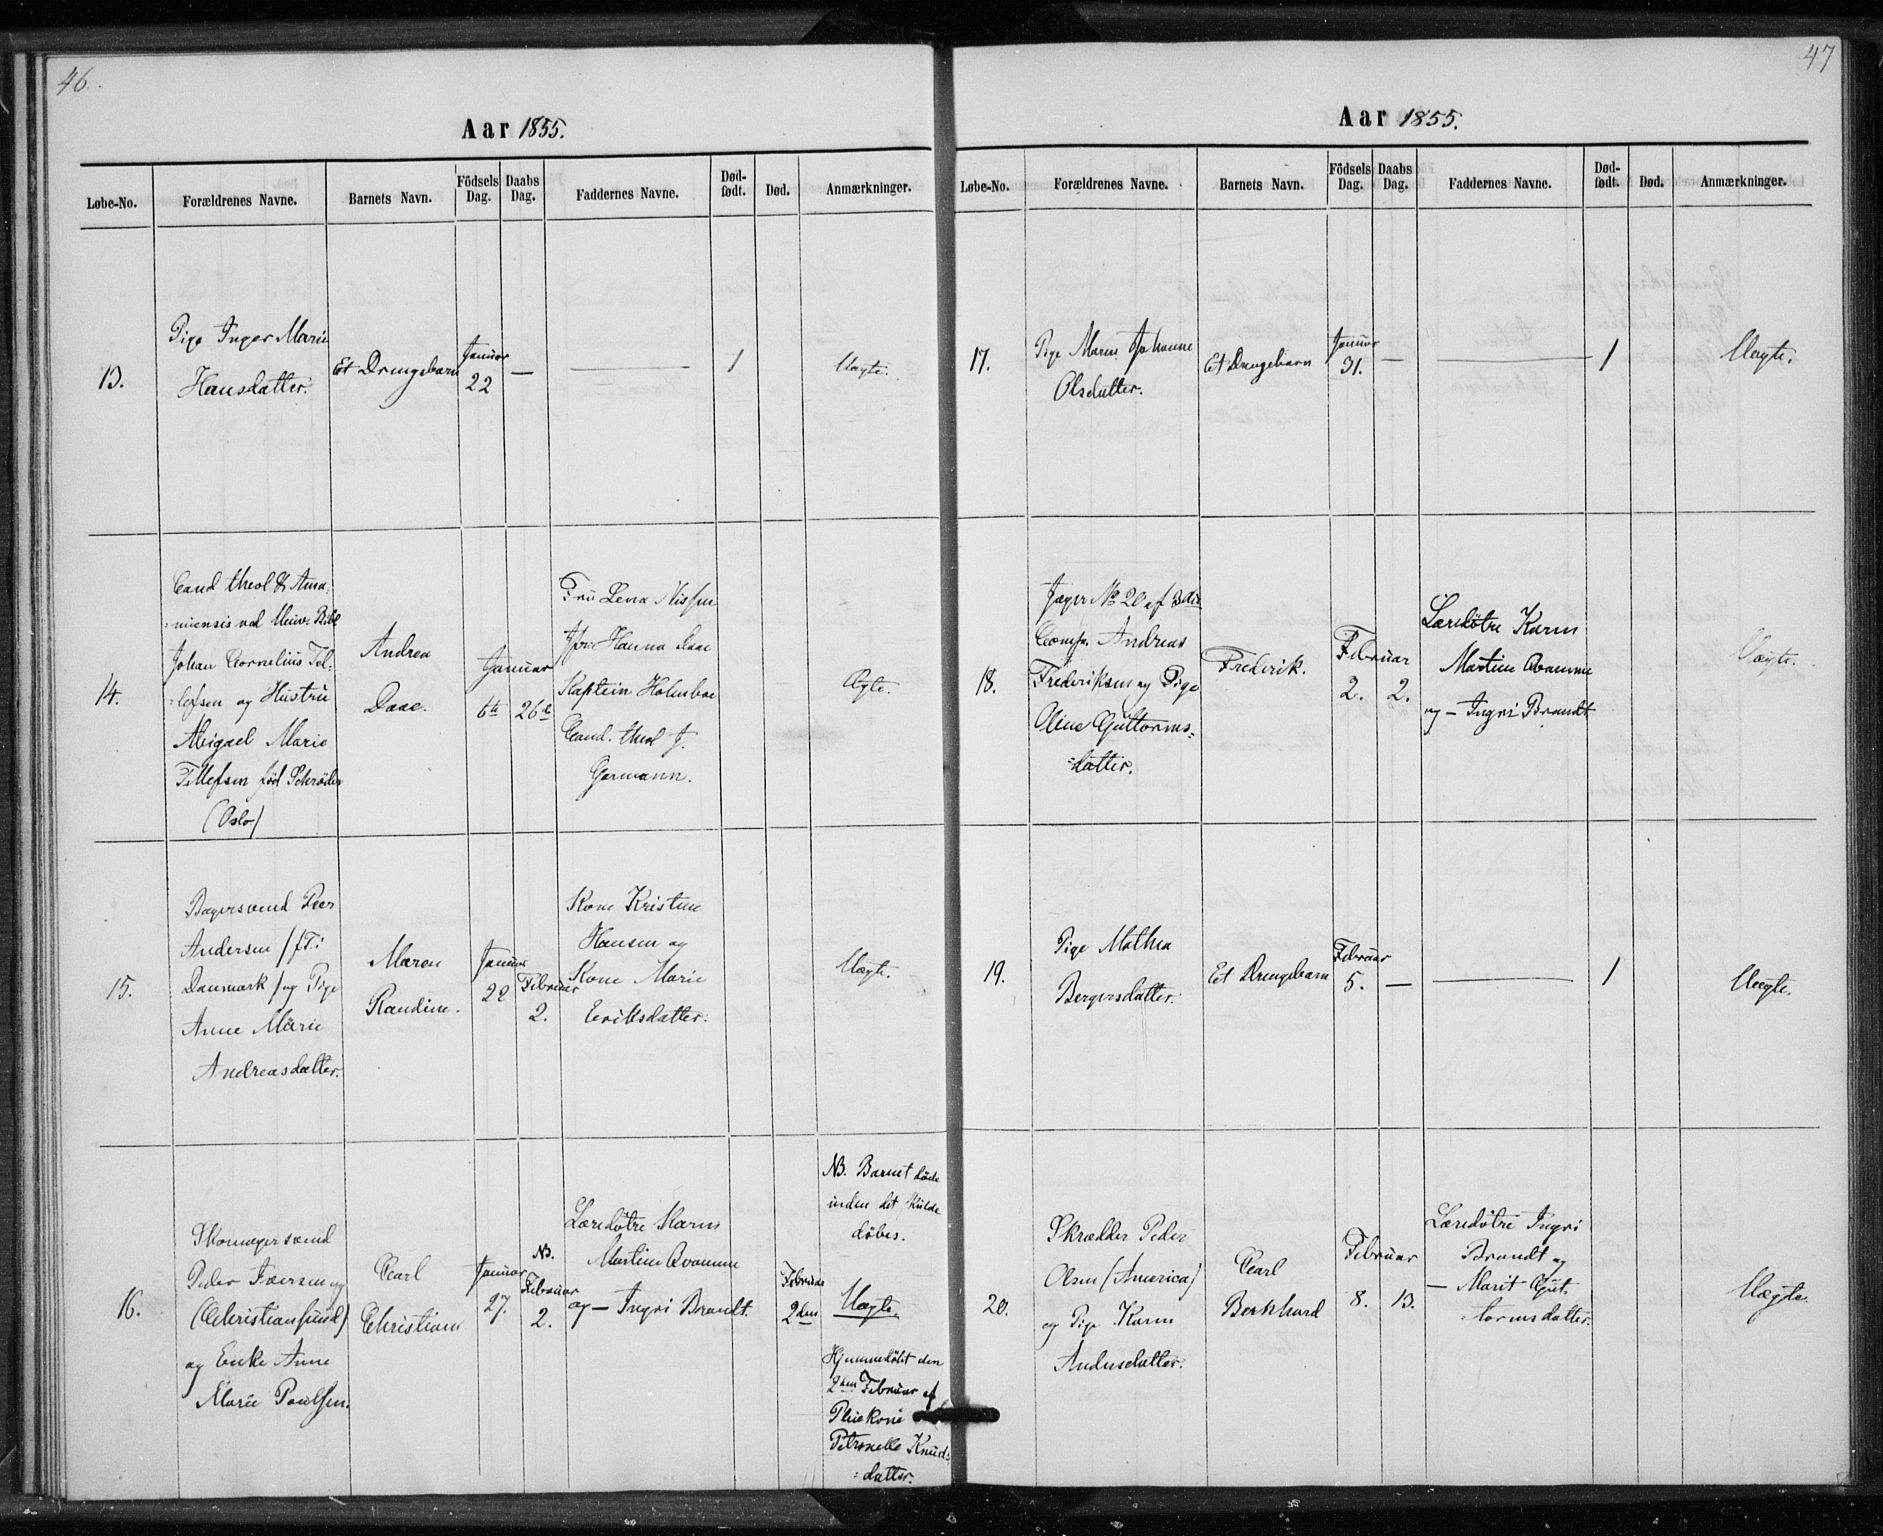 46.
Aar 1855.
Løbe-No. Forældrenes Navne. Barnets Navn. Födsels Dag. Daabs Dag. Faddernes Navne. Død-født. Død. Anmærkninger.
13.
Pige Inger Marie
Hansdatter.
Et Drengebarn
Januar
22
—
—
1
Uægte.
14.
Cand theol & Ama-
nuensis ved Univ: Bibl
Johan Cornelius Tel-
lefsen og Hustru
Abigael Marie
Tellefsen född Schrøder
(Oslo)
Andrea
Daae.
Januar
6te
26de
Fru Lena Nissen
Hanna Daae
Kaptein Holmboe
Cand. theol J.
Garmann.
Ægte.
15.
Bagersvend Peer
Andersen /f T:
Danmark/ og Pige
Anne Marie
Andreasdatter.
Maren
Randine.
Januar
22
Februar
2.
Kone Kristine
Hansen og
Kone Marie
Eriksdatter.
Uægte.
16.
Skomagersvend
Peder Iversen og
(Christianssund)
og Enke Anne
Marie Paulsen.
Carl
Christian
Januar
27.
NB.
Februar
2.
Læredøtre Karen
Martine Qvamme
og — Ingri Brandt.
Februar
2den
NB. Barnet døde
inden det skulde
döbes.
Uægte.
Hjemmedöbt den
2den Februar af
Pleiekone
Petronelle Knuds-
datter.
47
Aar 1855.
Løbe-No. Forældrenes Navne. Barnets Navn. Födsels Dag. Daabs Dag. Faddernes Navne. Død-født. Død. Anmærkninger.
17.
Pige Maren Johanne
Olsdatter.
Et Drengebarn
Januar
31.
—
—
1
Uægte.
18.
Jæger No 20 af 3die
Comp. Andreas
Frederiksen og Pige
Oline Guttorms-
datter.
Frederik.
Februar
2.
2.
Læredøtre Karen
Martine Qvamme
og — Ingri Brandt
Uægte.
19.
Pige Mathea
Bergersdatter.
Et Drengebarn
Februar
5.
—
—
1
Uægte.
20.
Skrædder Peder
Olsen (America)
og Pige Karen
Andersdatter.
Carl
Bernhard
Februar
8.
13.
Læredøtre Ingri
Brandt og
— Marit Gut-
tormsdatter.
Uægte.